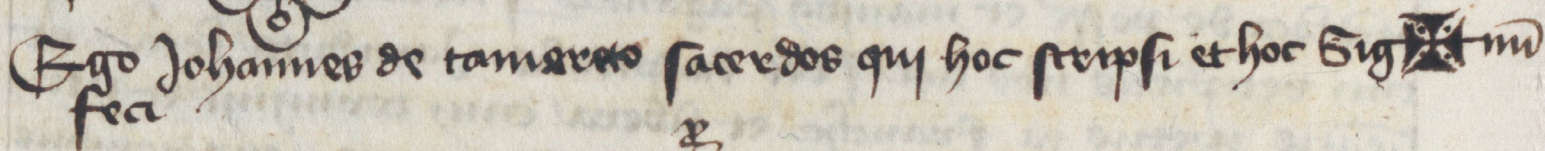 Ego Johannes de tamareto sacerdos qui hoc scripsi et hoc Sig✠nū
feci